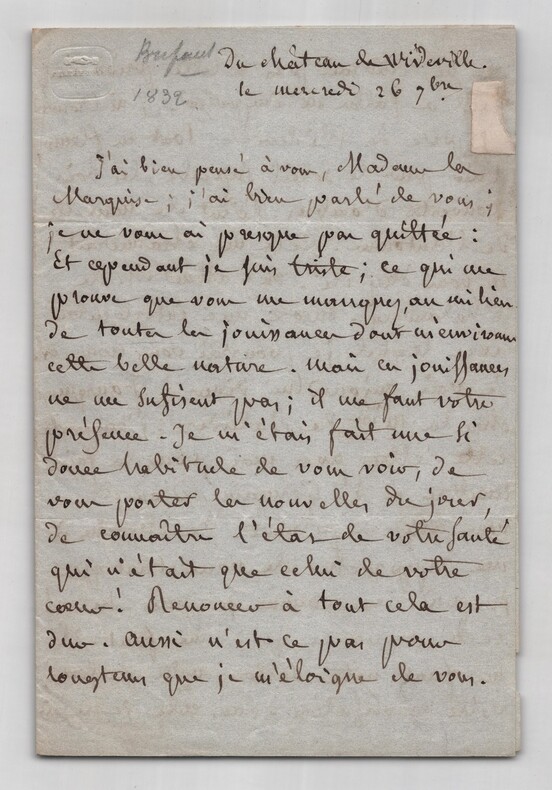 Brifaut
1832
Du château de Wideville.
le mercredi 26 7bre
J'ai bien pensé à vous, Madame la
Marquise ; j'ai bien parlé de vous ;
je ne vous ai presque pas quittée :
Et cependant je suis triste ; ce qui me
prouve que vous me manquez, au milieu
de toutes les jouissances dont m'environne
cette belle nature. Mais ces jouissances
ne me sufisent pas ; il me faut votre
présence. Je m'étais fait une si
douce habitude de vous voir, de
vous porter les nouvelles du jour,
de connaître l'état de votre santé
qui n'était que celui de votre
cœur ! Renoncer à tout cela est
dur. Aussi n'est ce pas pour
longtems que je m'éloigne de vous.